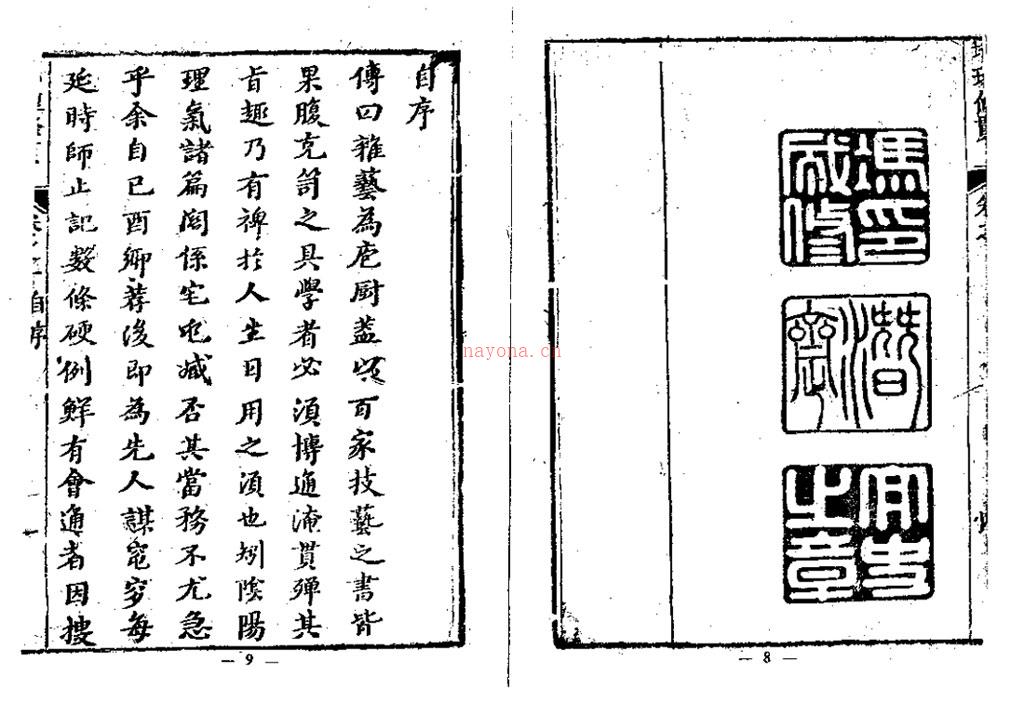 馮印
成修
潛
齋
之章
— 8 —
自序
傳曰雜藝為庖厨葢以百家技藝之書皆
果腹克笥之具學者必須博通淹貫殫其
旨趣乃有裨於人生日用之須也矧陰陽
理氣諸篇関係宅兆臧否其當務不尤急
乎余自己酉鄉荐後即為先人謀窀穸每
延時師止記数條硬例鮮有會通者因搜
自序
— 9 —
nayona.cn